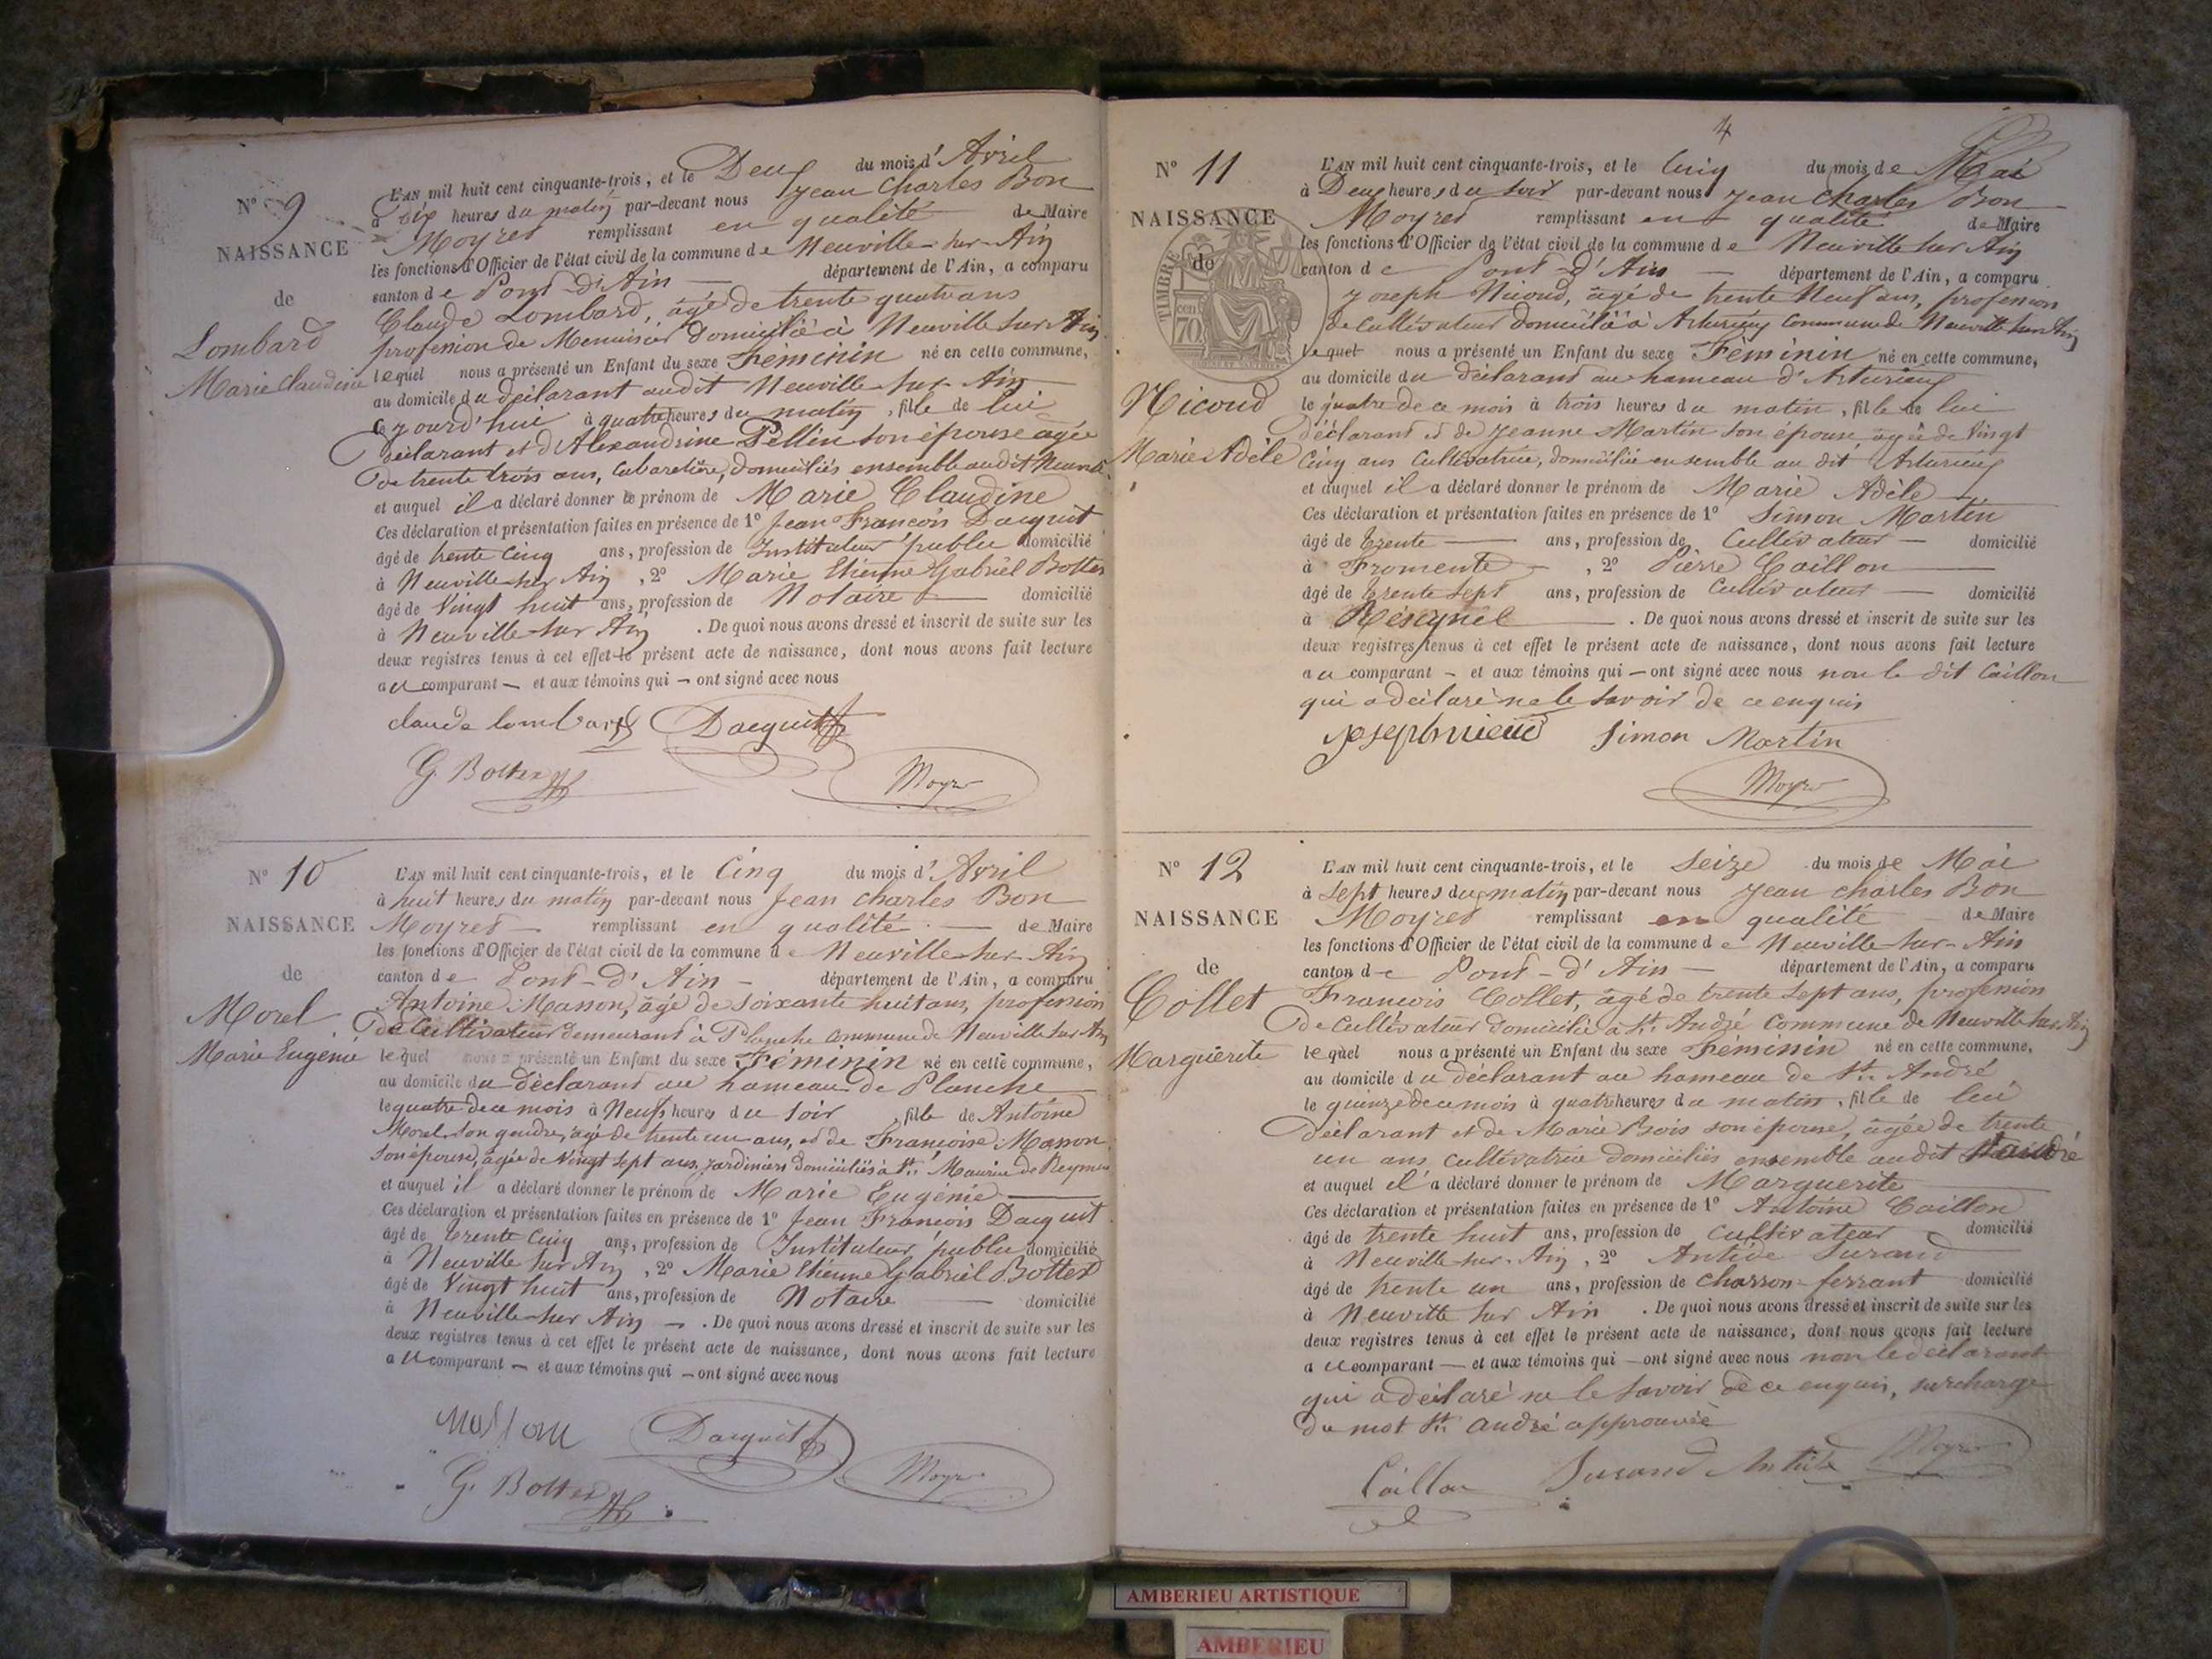 N° 9
NAISSANCE
de
Lombard
Marie Claudine
L'AN mil huit cent cinquante-trois, et le Deux du mois d'Avril
à dix heures du matin par-devant nous Jean Charles Bon
Moyret remplissant en qualité de Maire
les fonctions d'Officier de l'état civil de la commune de Neuville sur Ain
canton de Pont-d'Ain département de l'Ain, a comparu
Claude Lombard, âgé de trente quatre ans
profession de Menuisier domicilié à Neuville sur Ain
lequel nous a présenté un Enfant du sexe Féminin né en cette commune,
au domicile du déclarant audit Neuville sur Ain
cejourd'hui à quatre heures du matin, fille de lui
déclarant et d'Alexandrine Pellin son épouse âgée
de trente trois ans, Cabaretière, domiciliés ensemble audit Neuville
et auquel il a déclaré donner le prénom de Marie Claudine
Ces déclaration et présentation faites en présence de 1° Jean François Dacquit
âgé de trente cinq ans, profession de Instituteur public domicilié
à Neuville sur Ain, 2° Marie Etienne Gabriel Bottex
âgé de Vingt huit ans, profession de Notaire domicilié
à Neuville sur Ain. De quoi nous avons dressé et inscrit de suite sur les
deux registres tenus à cet effet le présent acte de naissance, dont nous avons fait lecture
au comparant — et aux témoins qui — ont signé avec nous
claude lombard Dacquit
G. Bottex Moyret
N° 10
NAISSANCE
de
Morel
Marie Eugénie
L'AN mil huit cent cinquante-trois, et le Cinq du mois d'Avril
à huit heures du matin par-devant nous Jean Charles Bon
Moyret — remplissant en qualité — de Maire
les fonctions d'Officier de l'état civil de la commune de Neuville sur Ain
canton de Pont-d'Ain — département de l'Ain, a comparu
Antoine Masson, âgé de soixante huit ans, profession
de Cultivateur demeurant à Planche commune de Neuville sur Ain
lequel nous a présenté un Enfant du sexe Féminin né en cette commune,
au domicile du déclarant au hameau de Planche
le quatre de ce mois à Neuf heures du soir, fille de Antoine
Morel son gendre, âgé de trente un ans, et de Françoise Masson
son épouse, âgée de Vingt sept ans, jardiniers domiciliés à St. Maurice de
et auquel il a déclaré donner le prénom de Marie Eugénie
Ces déclaration et présentation faites en présence de 1° Jean François Dacquit
âgé de trente cinq ans, profession de Instituteur public domicilié
à Neuville sur Ain, 2° Marie Etienne Gabriel Bottex
âgé de Vingt huit ans, profession de Notaire — domicilié
à Neuville sur Ain —. De quoi nous avons dressé et inscrit de suite sur les
deux registres tenus à cet effet le présent acte de naissance, dont nous avons fait lecture
au comparant — et aux témoins qui — ont signé avec nous
Masson Dacquit
G. Bottex Moyret
4
N° 11
NAISSANCE
de
TIMBRE
70
Nicoud
Marie Adèle
L'AN mil huit cent cinquante-trois, et le Cinq du mois de Mai
à Deux heures du soir par-devant nous Jean Charles Bon
Moyret remplissant en qualité de Maire
les fonctions d'Officier de l'état civil de la commune de Neuville sur Ain
canton de Pont-d'Ain — département de l'Ain, a comparu
Joseph Nicoud, âgé de trente Neuf ans, profession
de cultivateur domicilié à Arturieux commune de Neuville sur Ain
lequel nous a présenté un Enfant du sexe Féminin né en cette commune,
au domicile du déclarant au hameau d'Arturieux
le quatre de ce mois à trois heures du matin, fille de lui
déclarant et de Jeanne Martin son épouse, âgée de Vingt
Cinq ans Cultivatrice, domiciliés ensemble au dit Arturieux
et auquel il a déclaré donner le prénom de Marie Adèle
Ces déclaration et présentation faites en présence de 1° Simon Martin
âgé de trente — ans, profession de Cultivateur — domicilié
à Fromente —, 2° Pierre Caillon
âgé de trente sept ans, profession de Cultivateur — domicilié
à Résignel —. De quoi nous avons dressé et inscrit de suite sur les
deux registres tenus à cet effet le présent acte de naissance, dont nous avons fait lecture
au comparant — et aux témoins qui — ont signé avec nous non le dit Caillon
qui a déclaré ne le savoir de ce enquis
joseph nicoud Simon Martin
Moyret
N° 12
NAISSANCE
de
Collet
Marguerite
L'AN mil huit cent cinquante-trois, et le Seize du mois de Mai
à Sept heures du matin par-devant nous Jean Charles Bon
Moyret remplissant en qualité de Maire
les fonctions d'Officier de l'état civil de la commune de Neuville sur Ain
canton de Pont-d'Ain — département de l'Ain, a comparu
François Collet, âgé de trente sept ans, profession
de cultivateur domicilié à St. André commune de Neuville sur Ain
lequel nous a présenté un Enfant du sexe Féminin né en cette commune,
au domicile du déclarant au hameau de St. André
le quinze de ce mois à quatre heures du matin, fille de lui
déclarant et de Marie Bois son épouse, âgée de trente
un ans, cultivatrice domiciliés ensemble audit St André
et auquel il a déclaré donner le prénom de Marguerite
Ces déclaration et présentation faites en présence de 1° Antoine Caillon
âgé de trente huit ans, profession de Cultivateur domicilié
à Neuville sur Ain, 2° Antide Durand
âgé de trente un ans, profession de charron-ferrant domicilié
à Neuville sur Ain. De quoi nous avons dressé et inscrit de suite sur les
deux registres tenus à cet effet le présent acte de naissance, dont nous avons fait lecture
au comparant — et aux témoins qui — ont signé avec nous non le déclarant
qui a déclaré ne le savoir de ce enquis, surcharge
du mot St. André approuvée
Caillon Durand Antide Moyret
AMBERIEU ARTISTIQUE
AMBERIEU